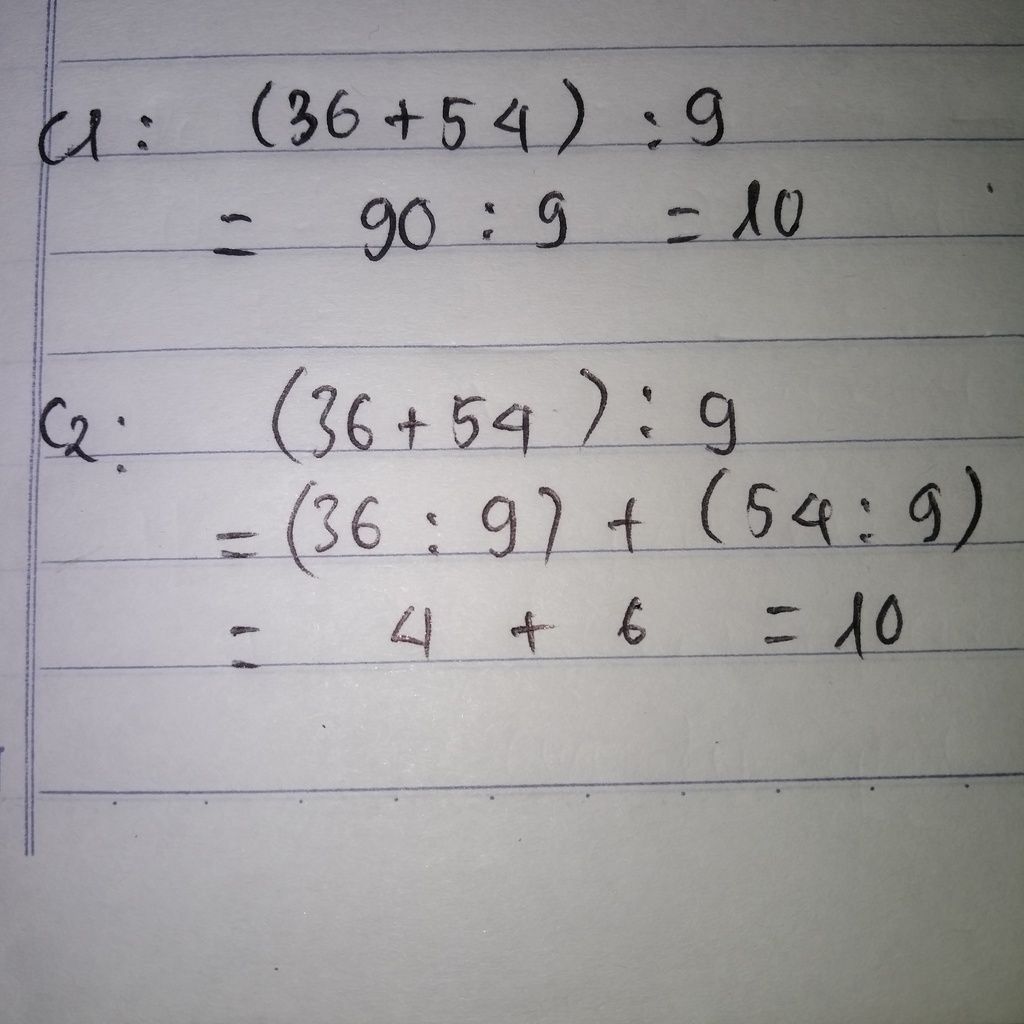 C1: (36 + 54) : 9
= 90 : 9 = 10
C2: (36 + 54) : 9
= (36 : 9) + (54 : 9)
= 4 + 6 = 10